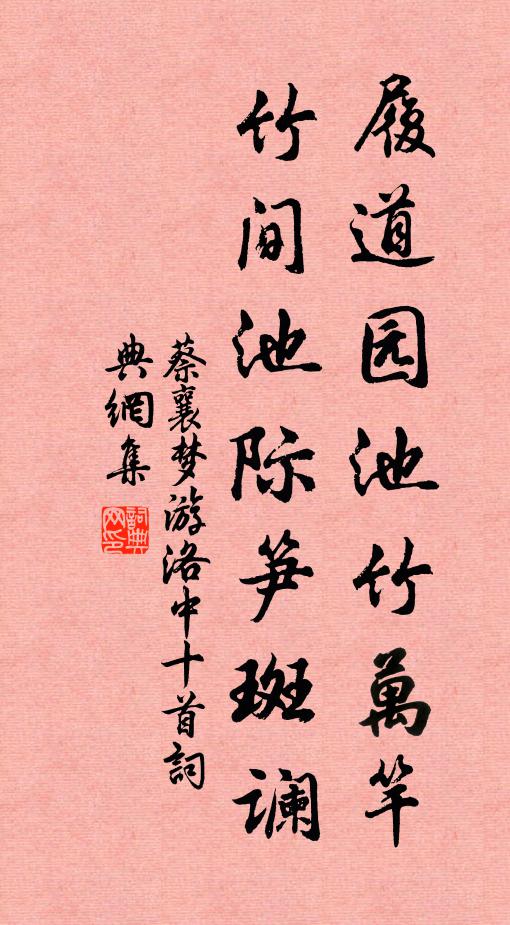 履道园池竹萬竿
竹间池际笋斑谰
蔡襄梦游洛中十首詞
典網集
詞典网印